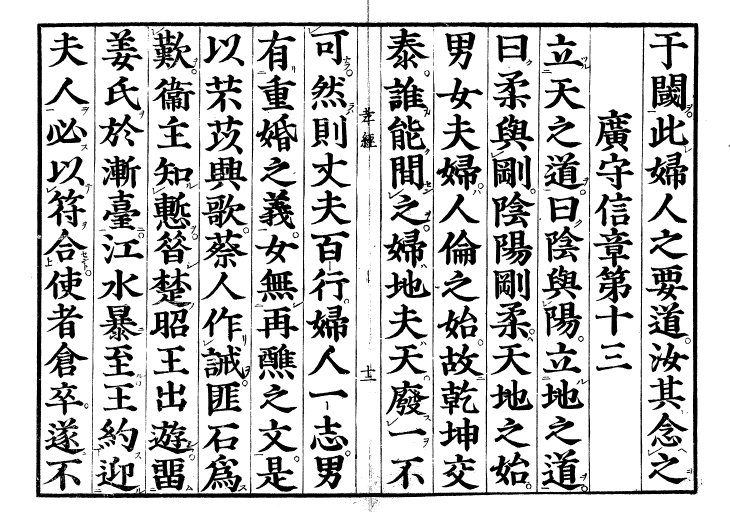 于閾此婦人之要道汝其念之
廣守信章第十三
立天之道曰陰與陽立地之道
曰柔與剛陰陽剛柔天地之始
男女夫婦人倫之始故乾坤交
泰誰能間之婦地夫天廢一不
孝經
可然則丈夫百行婦人一志男
有重婚之義女無再醮之文是
以芣苡興歌蔡人作誡匪石爲
歎衞主知慙昝楚昭王出遊畱
姜氏於漸臺江水暴至王約迎
夫人必以符合使者倉卒遂不